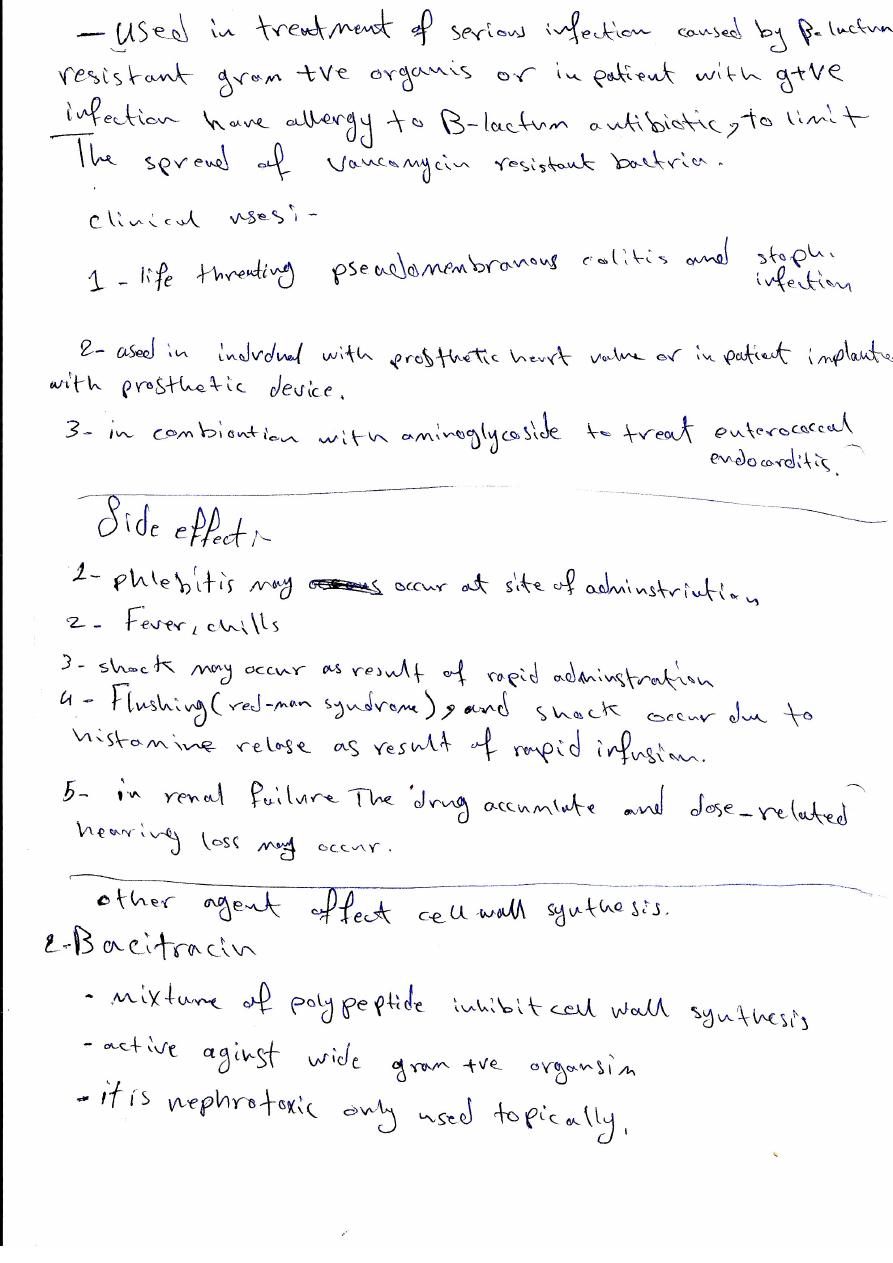 - Used in treatment of serious infection caused by β-lactum
resistant gram +ve organis or in patient with g+ve
infection have allergy to B-lactum antibiotic, to limit
The spread of vancomycin resistant bactria.
clinical uses:-
1 - life threating pseadomenbranous colitis and staph.
infection
2- used in indvdual with prosthetic heart value or in patient implante
with prosthetic device.
3- in combiantion with aminoglycoside to treat enterococcal
endocarditis.
Side effect:-
1- phlebitis may occur at site of adminstriation
2 - Fever, chills
3- shock may occur as result of rapid adminstration
4 - Flushing (red-man syndrome), and shock occur due to
histamine relase as result of rapid infusion.
5- in renal failure The drug accumlate and dose-related
hearing loss may occur.
other agent affect cell wall synthesis.
2-Bacitracin
- mixture of polypeptide inhibit cell wall synthesis
- active aginst wide gram +ve organsim
- it is nephrotoxic only used topically.